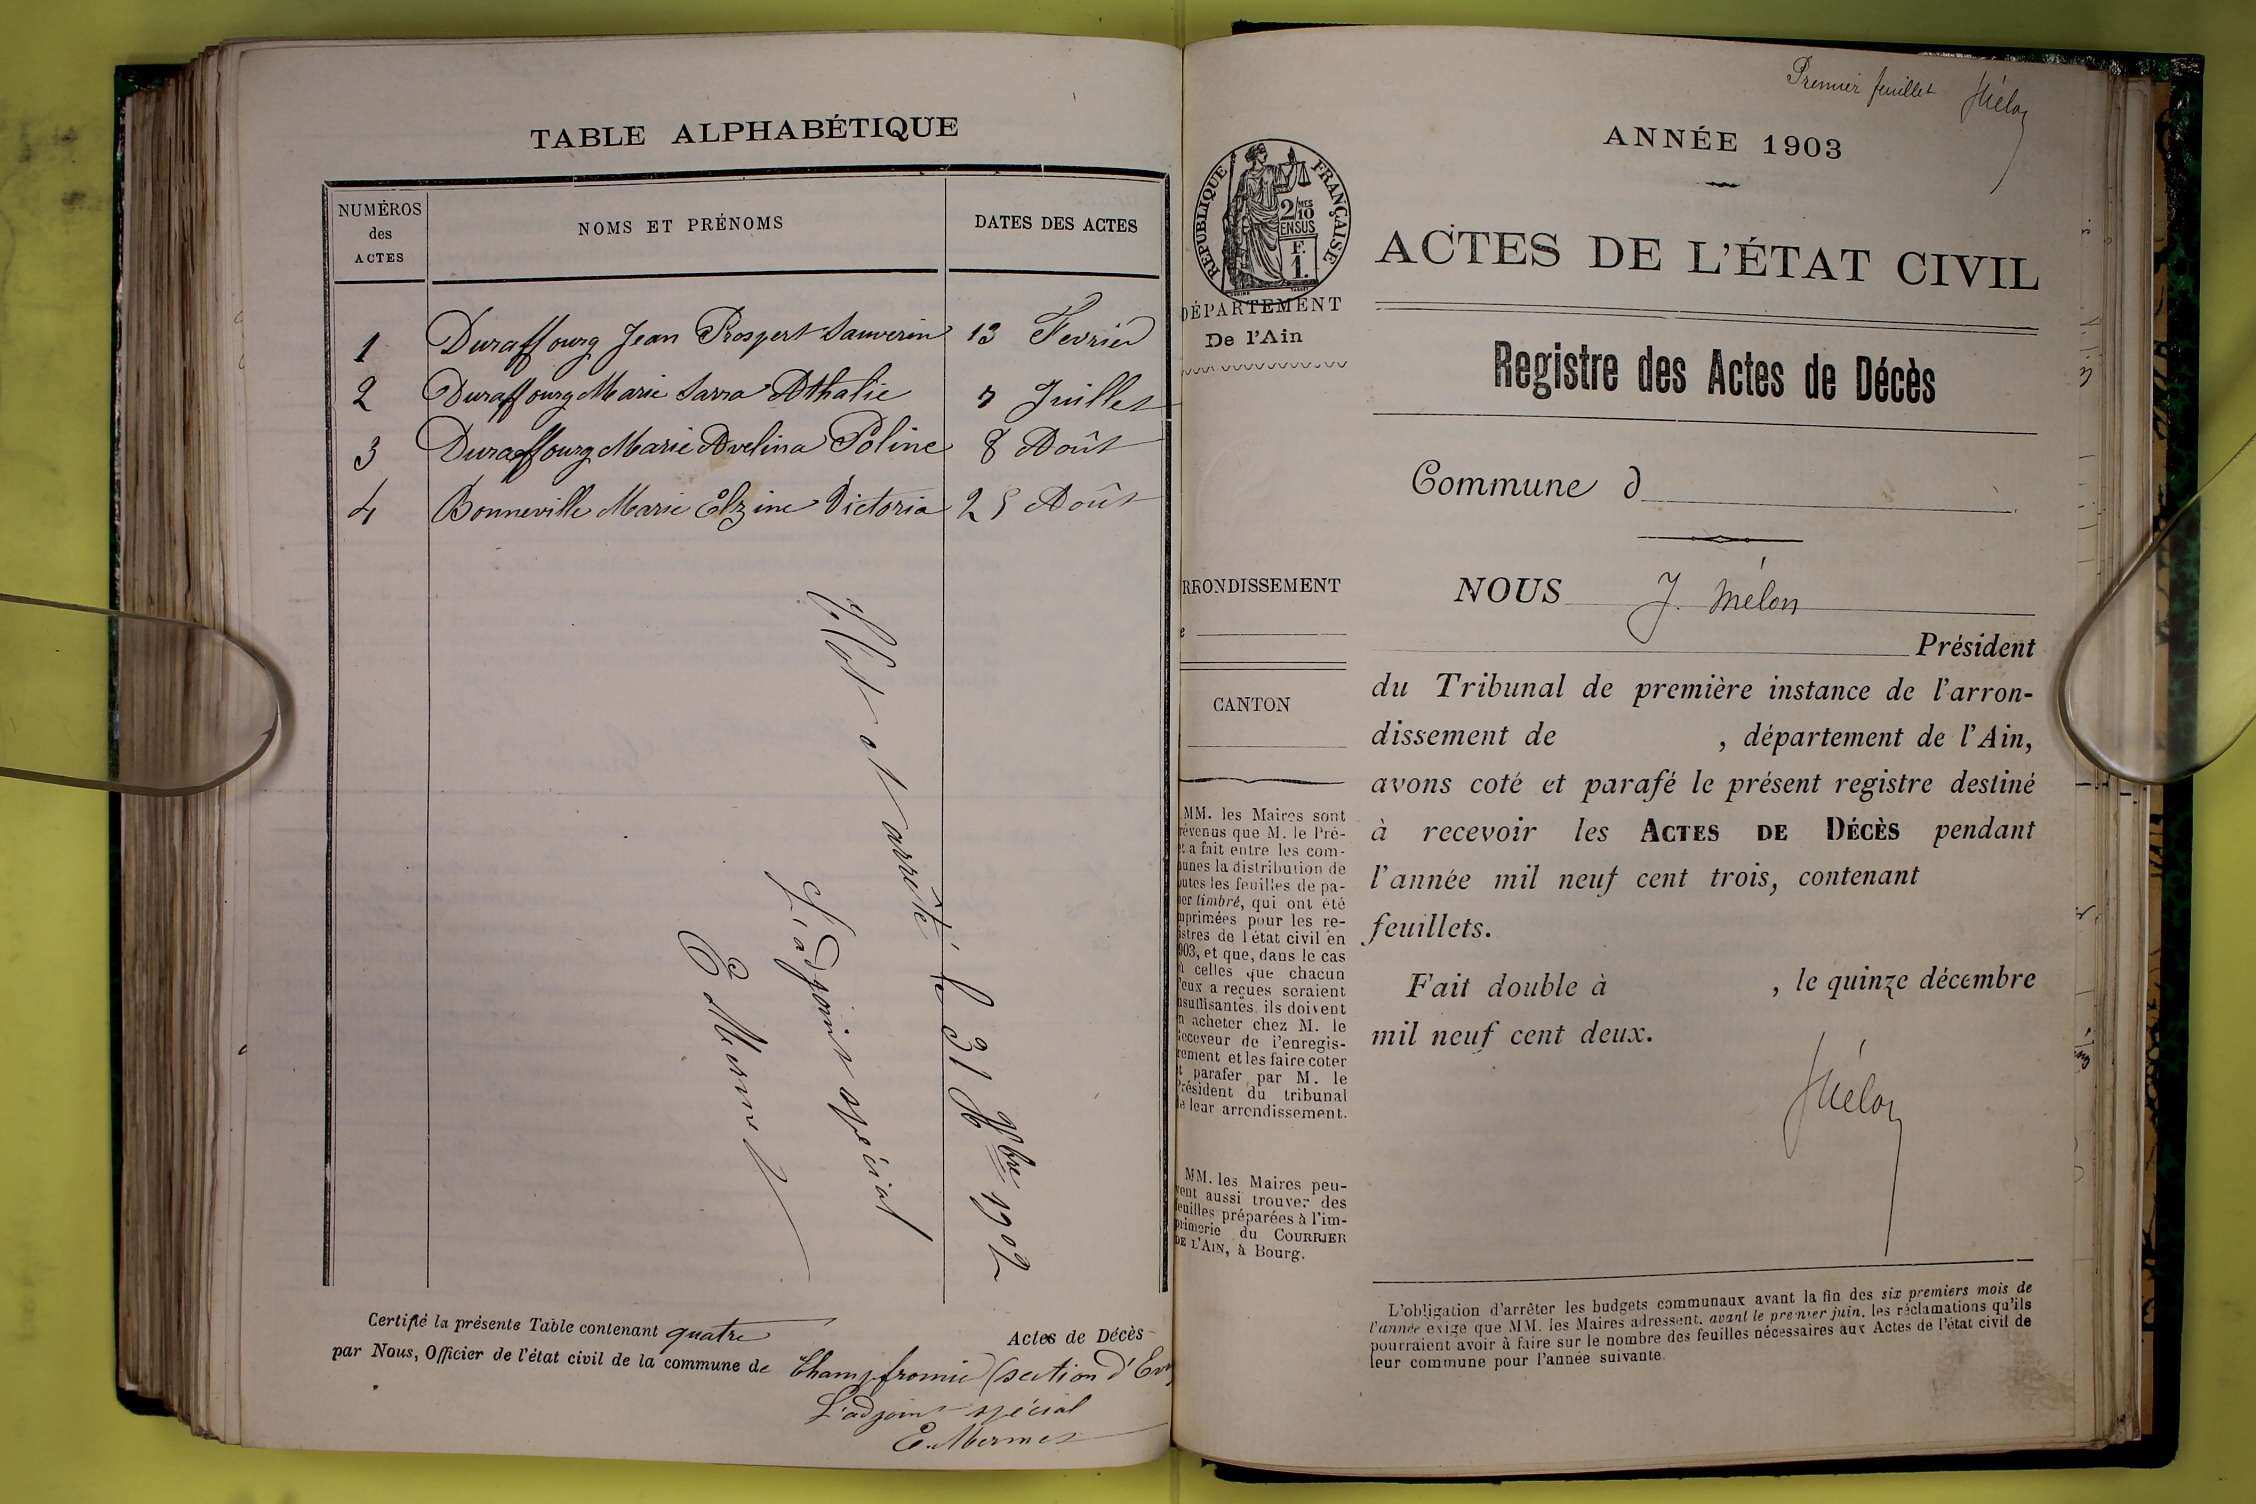 TABLE ALPHABÉTIQUE
NUMÉROS des ACTES
NOMS ET PRÉNOMS
DATES DES ACTES
1 Duraffourg Jean Prospert Sauverin 13 Fevrier
2 Duraffourg Marie Sarra Athalie 7 Juillet
3 Duraffourg Marie Avelina Poline 8 Août
4 Bonneville Marie Elzine Victoria 25 Août
Clos et arrêté le 31 Xbre 1902
L'adjoint spécial
E Mermet
Certifié la présente Table contenant quatre Actes de Décès
par Nous, Officier de l'état civil de la commune de Champfromier (section d'
L'adjoint spécial
E. Mermet
Premier feuillet JMélon
ANNÉE 1903
RÉPUBLIQUE FRANÇAISE
2/10 MES
EN SUS
F.
1.
ACTES DE L'ÉTAT CIVIL
DÉPARTEMENT
De l'Ain
Registre des Actes de Décès
Commune d
RRONDISSEMENT
e
CANTON
NOUS J. Mélon
Président
du Tribunal de première instance de l'arron-
dissement de , département de l'Ain,
avons coté et parafé le présent registre destiné
à recevoir les ACTES DE DÉCÈS pendant
l'année mil neuf cent trois, contenant
feuillets.
Fait double à , le quinze décembre
mil neuf cent deux.
JMélon
MM. les Maires sont
révenus que M. le Pré-
et a fait entre les com-
unes la distribution de
outes les feuilles de pa-
ier timbré, qui ont été
mprimées pour les re-
istres de l'état civil en
903, et que, dans le cas
ù celles que chacun
'eux a reçues seraient
nsuffisantes, ils doivent
n acheter chez M. le
eceveur de l'enregis-
rement et les faire coter
t parafer par M. le
Président du tribunal
de leur arrondissement.
MM. les Maires peu-
vent aussi trouver des
feuilles préparées à l'im-
primerie du COURRIER
DE L'AIN, à Bourg.
L'obligation d'arrêter les budgets communaux avant la fin des six premiers mois de
l'année exige que MM. les Maires adressent, avant le premier juin, les réclamations qu'ils
pourraient avoir à faire sur le nombre des feuilles nécessaires aux Actes de l'état civil de
leur commune pour l'année suivante.